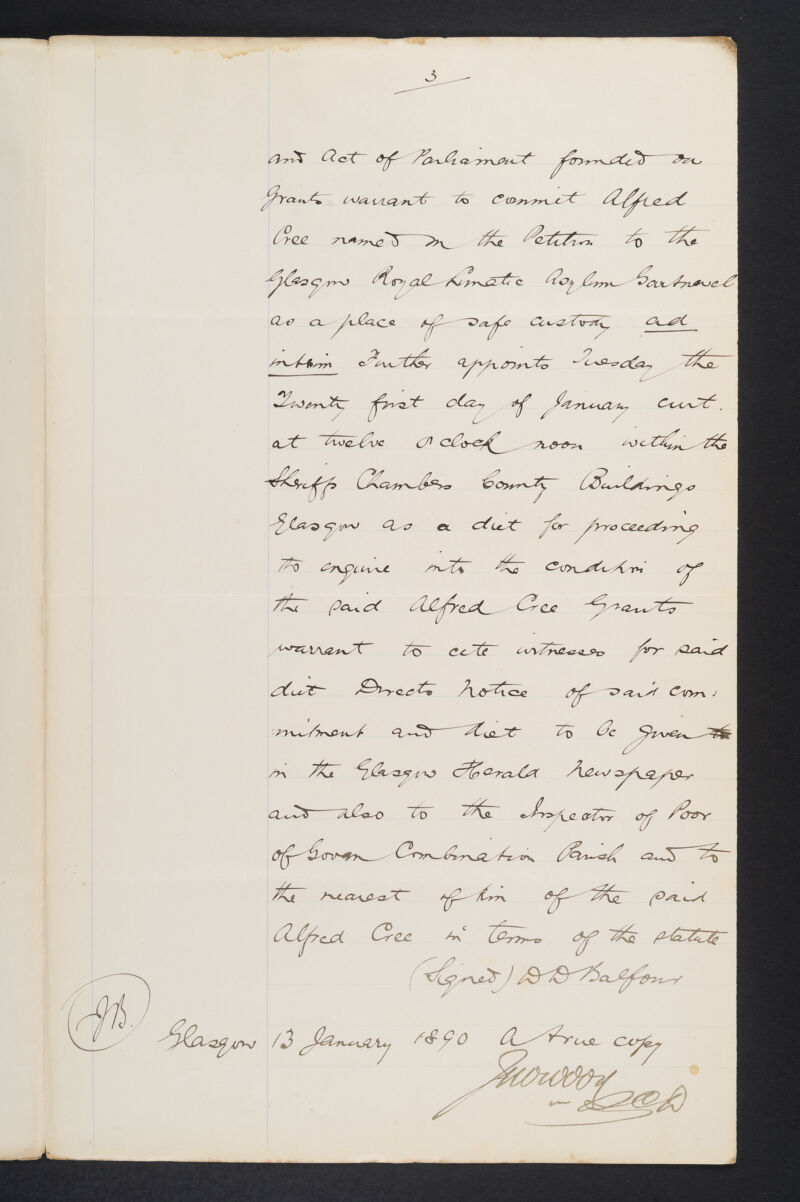 3
and Act of Parliament founded on
Grants warrant to commit Alfred
Cree named in the Petition to the
Glasgow Royal Lunatic Asylum Gartnavel
as a place of safe custody ad
interim Further appoints Tuesday the
Twenty first day of January curt.
at twelve o'clock noon within the
Sheriffs Chambers County Buildings
Glasgow as a diet for proceeding
to enquire into the condition of
the said Alfred Cree Grants
warrant to cite witnesses for said
diet Directs Notice of said com:
mitment and diet to be given
in the Glasgow Herald Newspaper
and also to the Inspector of Poor
of Govan Combination Parish and to
the nearest of kin of the said
Alfred Cree in terms of the statute
(Signed) D D Balfour
JB.
Glasgow 13 January 1890 A true copy